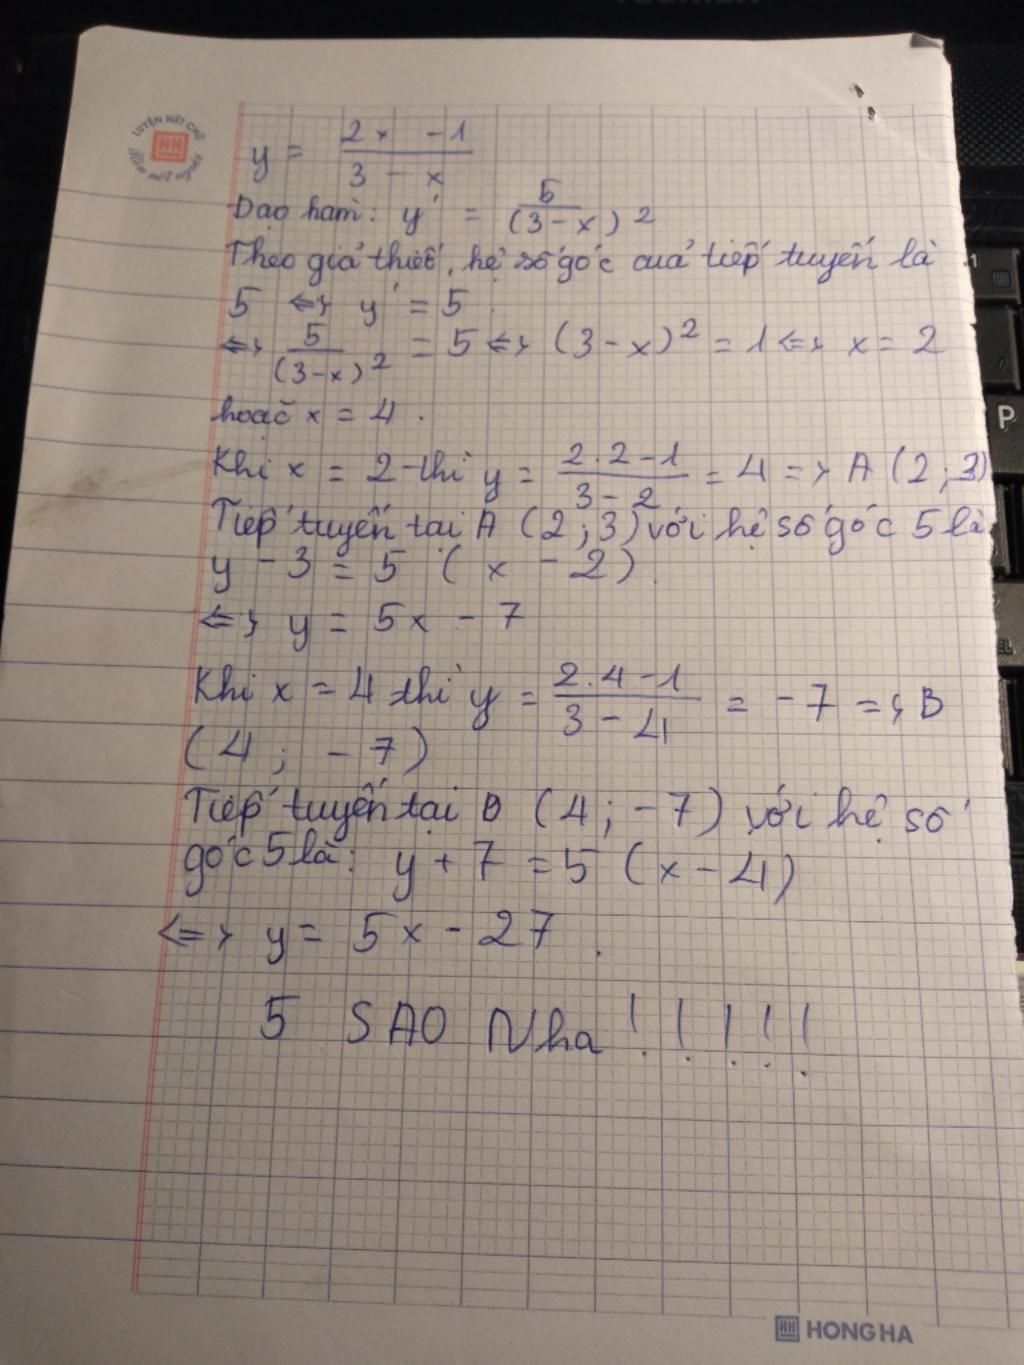 LUYỆN NÉT CHỮ
Rèn nết người
y = (2x - 1)/(3 - x)
Đạo hàm: y' = 5/(3-x)²
Theo giả thiết, hệ số góc của tiếp tuyến là
5 <=> y' = 5.
<=> 5/(3-x)² = 5 <=> (3-x)² = 1 <=> x = 2
hoặc x = 4.
Khi x = 2 thì y = (2.2-1)/(3-2) = 4 => A (2;3)
Tiếp tuyến tại A (2;3) với hệ số góc 5 là
y - 3 = 5 (x - 2).
<=> y = 5x - 7
Khi x = 4 thì y = (2.4-1)/(3-4) = -7 => B
(4; -7)
Tiếp tuyến tại B (4; -7) với hệ số
góc 5 là: y + 7 = 5 (x - 4)
<=> y = 5x - 27.
5 SAO Nha !!!!!
HONG HA
P